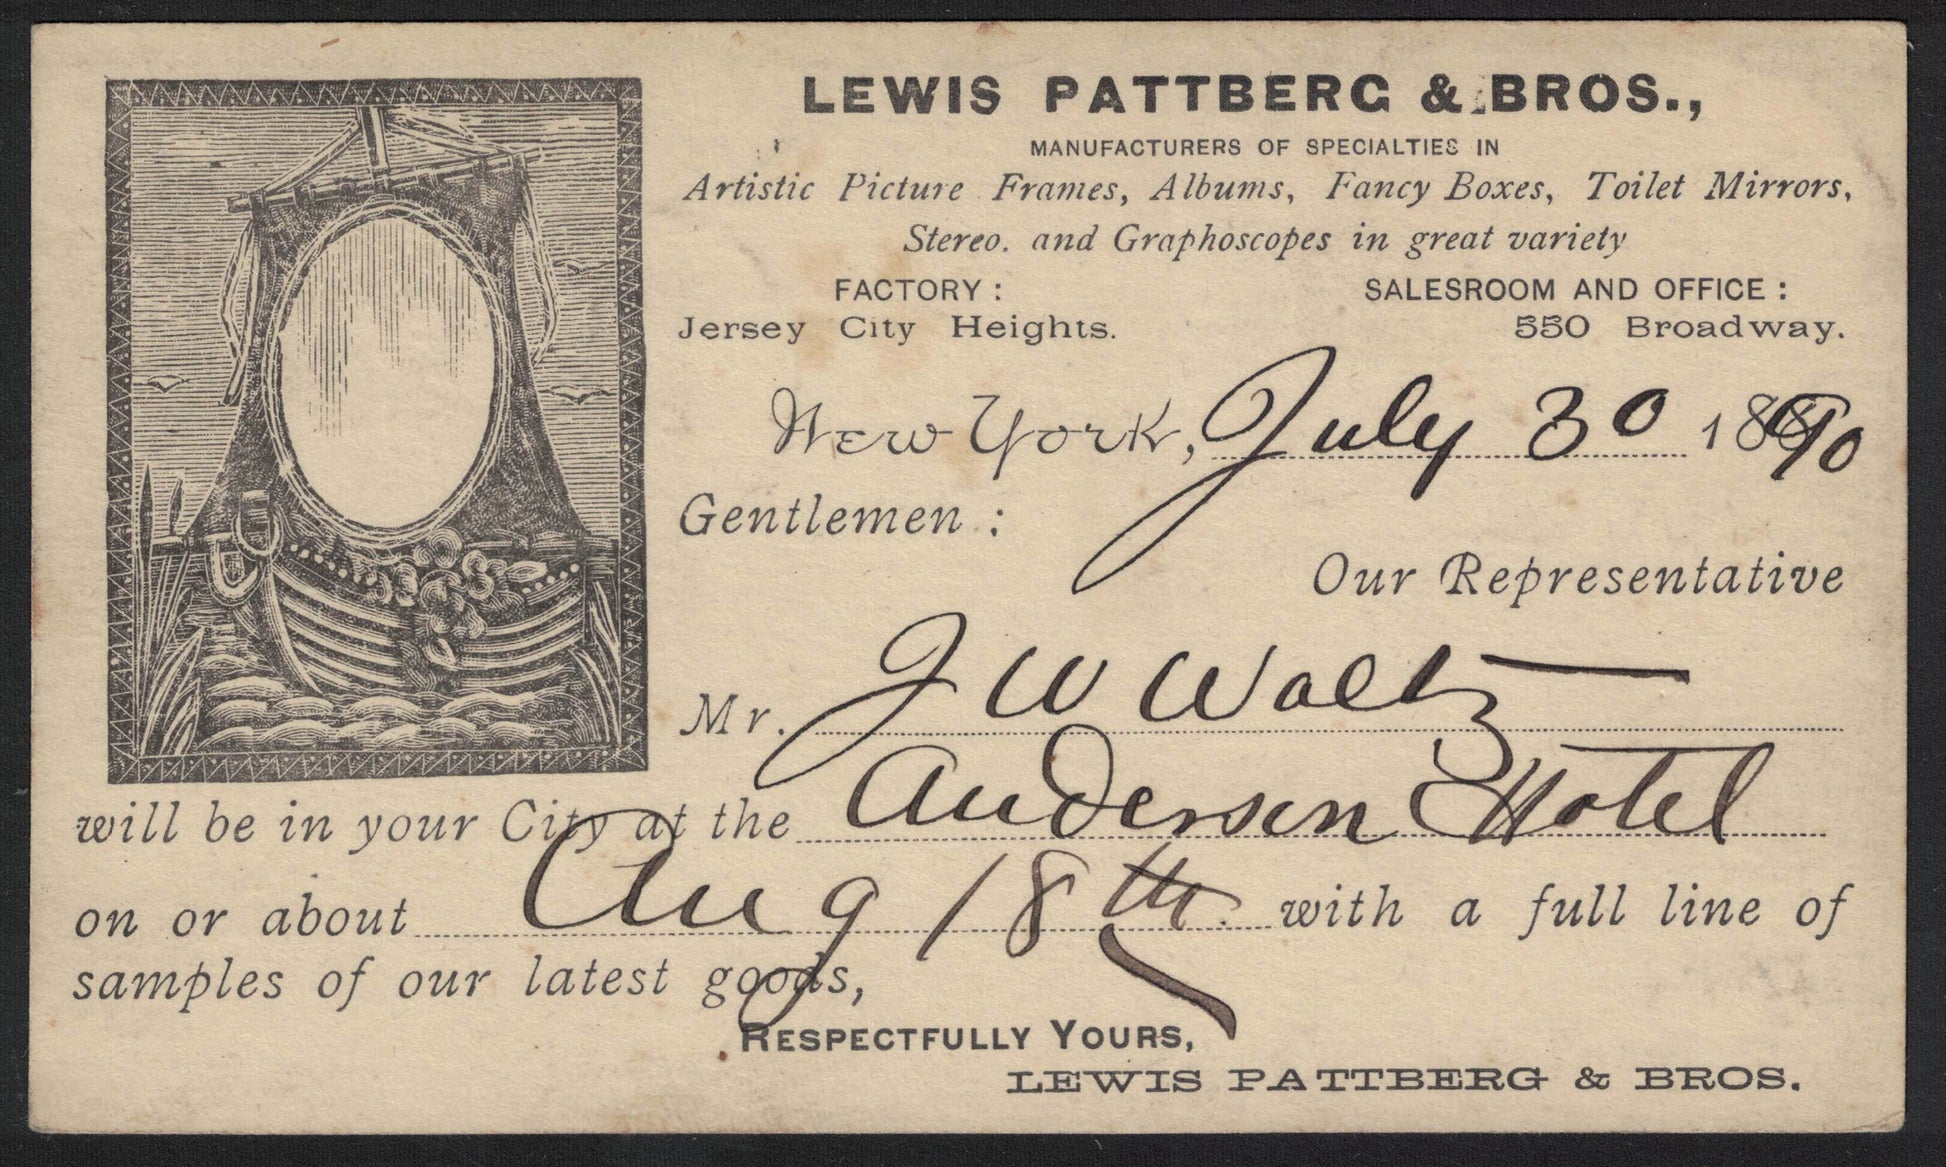 LEWIS PATTBERG & BROS.,
MANUFACTURERS OF SPECIALTIES IN
Artistic Picture Frames, Albums, Fancy Boxes, Toilet Mirrors,
Stereo. and Graphoscopes in great variety
FACTORY: SALESROOM AND OFFICE:
Jersey City Heights. 550 Broadway.
New York, July 30 1890
Gentlemen:
Our Representative
Mr. J W Waltz
will be in your City at the Anderson Hotel
on or about Aug 18th. with a full line of
samples of our latest goods,
RESPECTFULLY YOURS,
LEWIS PATTBERG & BROS.